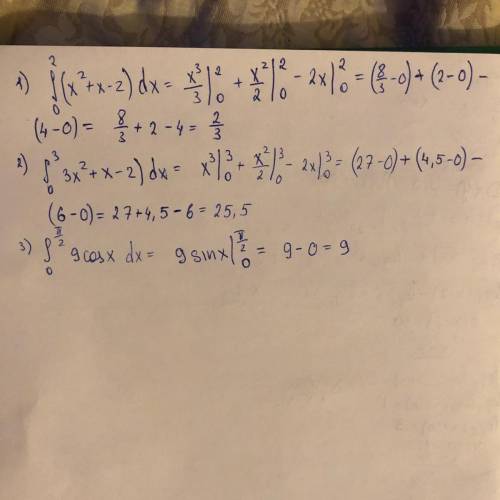 1) ∫₀² (x² + x - 2) dx = x³/3 |₀² + x²/2 |₀² - 2x |₀² = (8/3 - 0) + (2 - 0) -
(4 - 0) = 8/3 + 2 - 4 = 2/3
2) ∫₀³ 3x² + x - 2) dx = x³ |₀³ + x²/2 |₀³ - 2x |₀³ = (27 - 0) + (4,5 - 0) -
(6 - 0) = 27 + 4,5 - 6 = 25,5
3) ∫₀^(π/2) 9cosx dx = 9 sinx |₀^(π/2) = 9 - 0 = 9